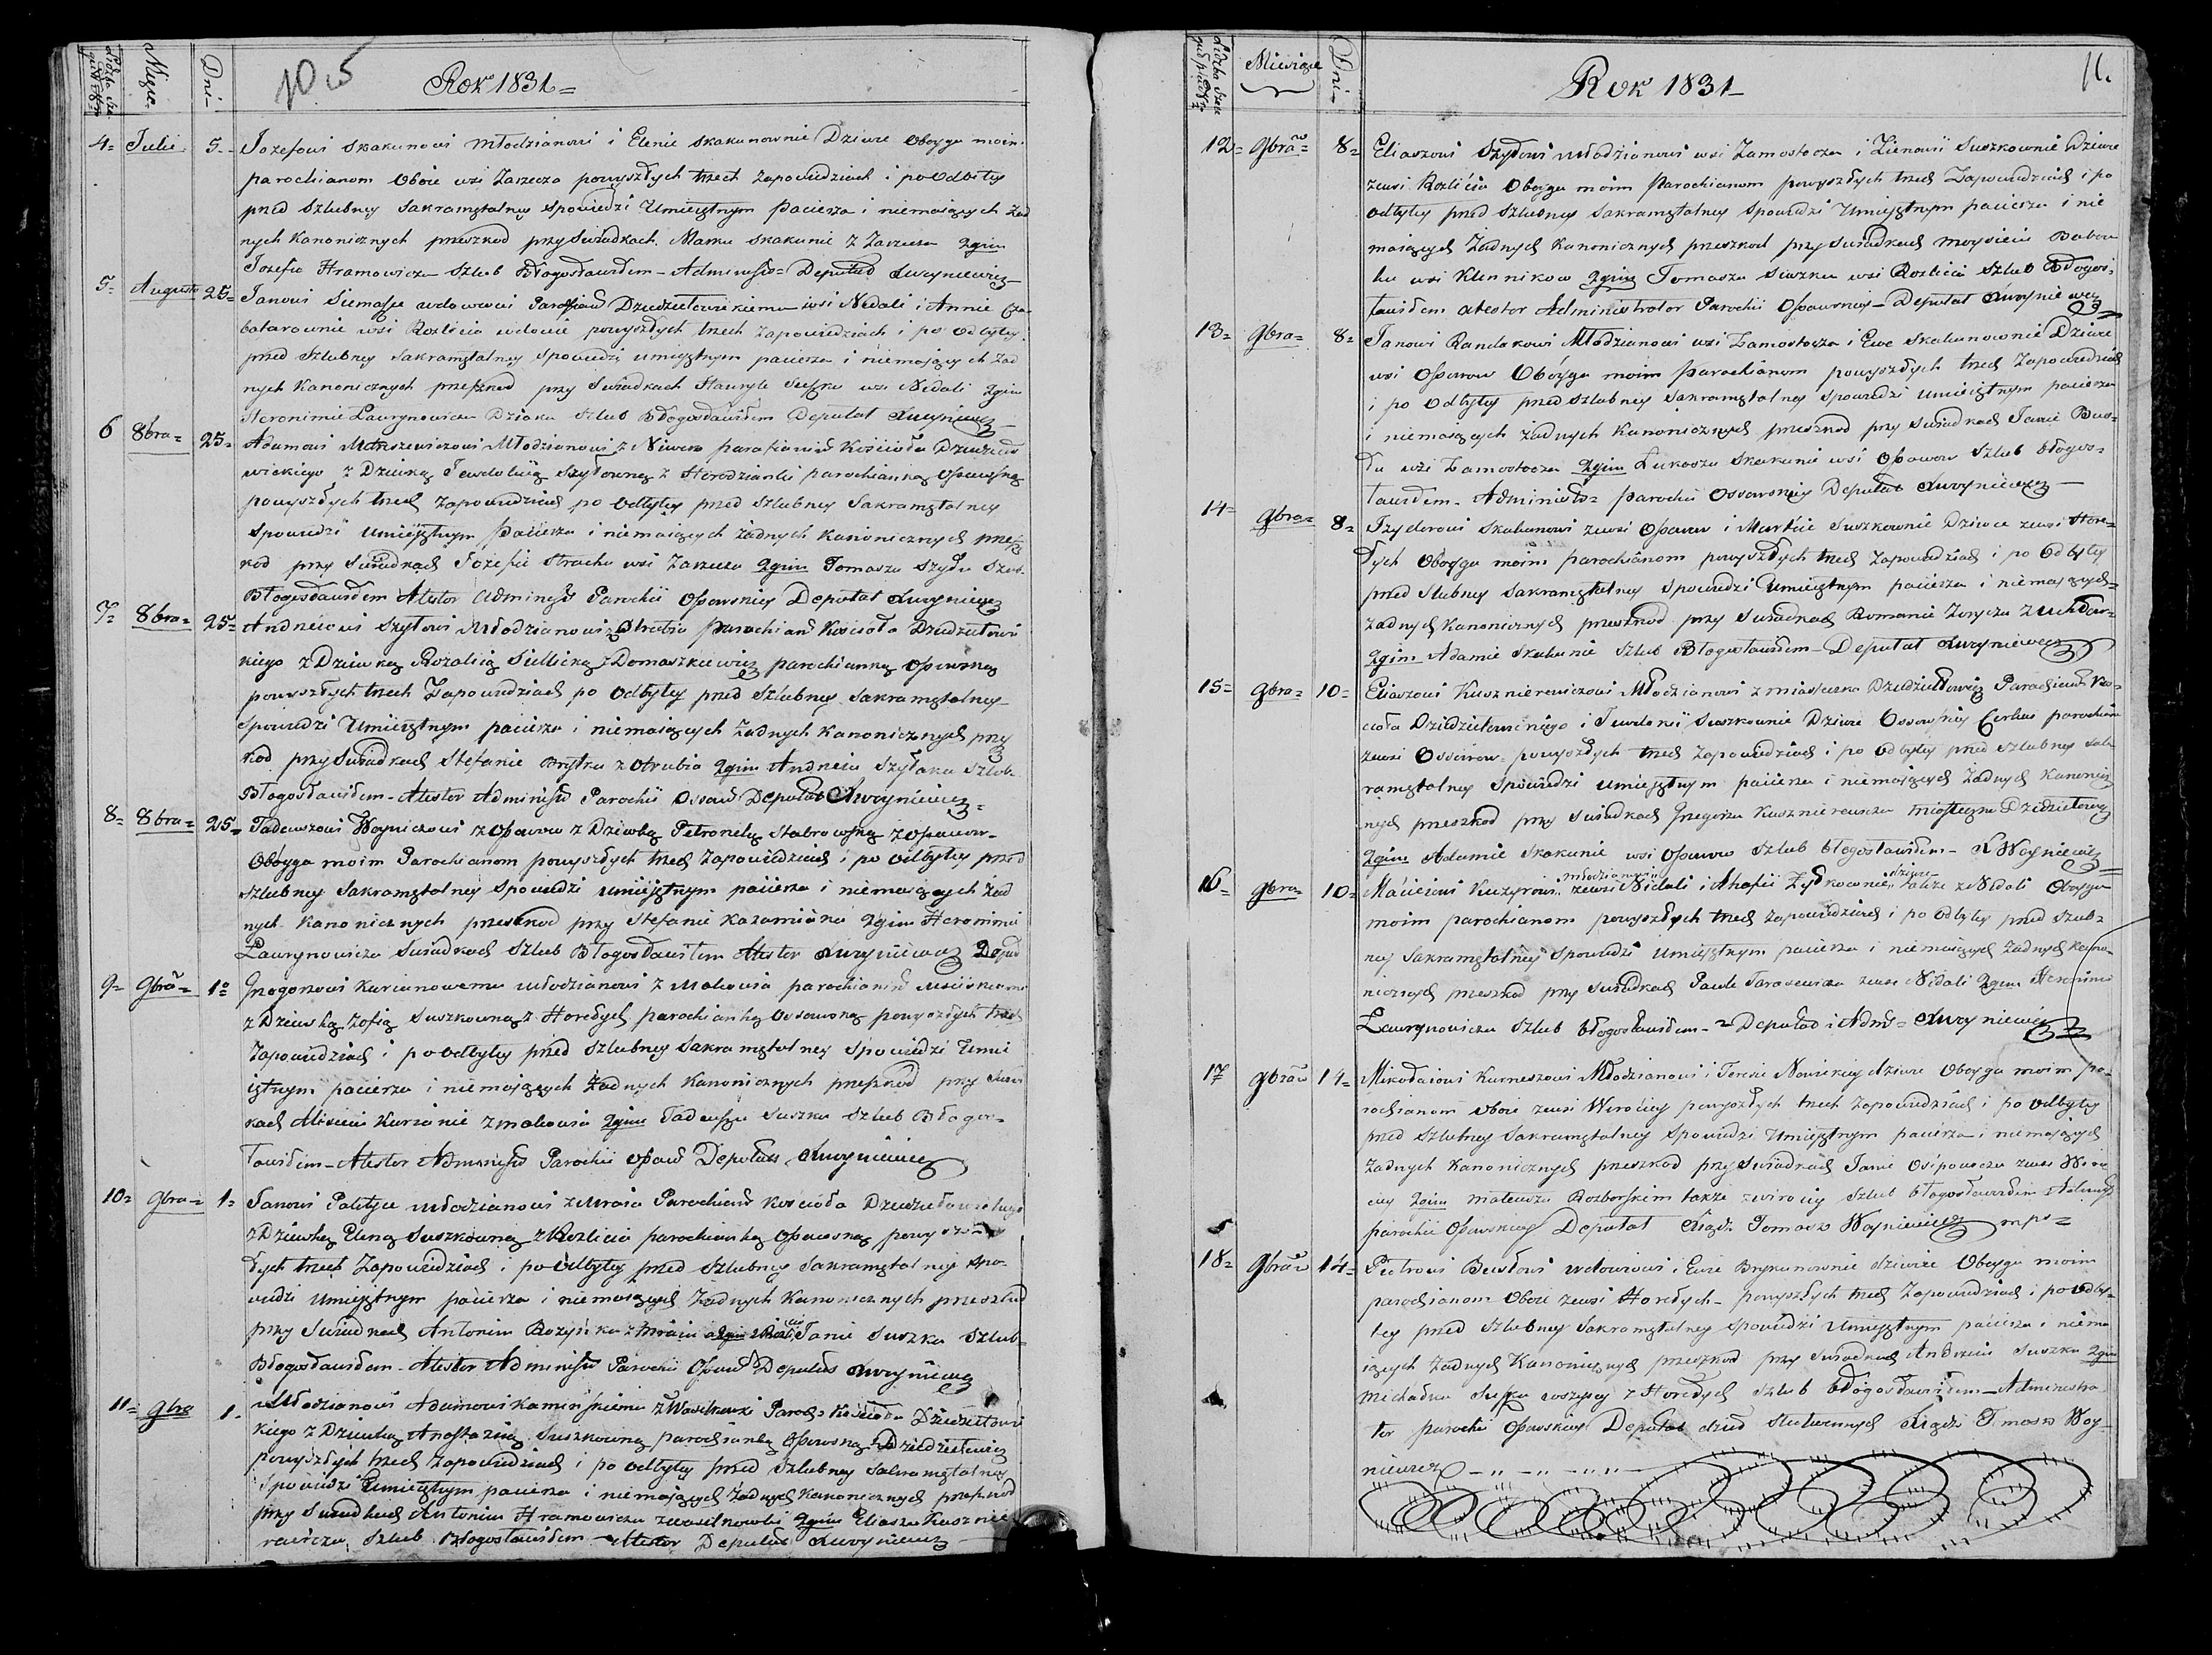 Miesiąc
Dni
Rok 1831
4 Julii 5 Jozefowi Skakunowi Młodzianowi i Elenie Skakunownie Dziwce Oboyga moim
parochianom Oboie wsi Zarzecza powyszłych trzech zapowiedziach i po Odbytey
przed szlubney Sakramętalney Spowiedzi Umieiętnym Pacierza i niemaiących żad
nych Kanonicznych przeszkod przy Swiadkach Marku Skakunie z Zarzecza 2gim
Jozefie Hramowiczu Szlub Błogosławiłem Administr Deputat Xwoyniewicz
5 Augusta 25 Janowi Siemaszce wdowcowi Dziedziełowickiemu wsi Nidali i Annie
batarownie wsi Rozlicia wdowie powyszłych trzech zapowiedziach i po odbytey
przed szlubney Sakramętalney Spowiedzi umieiętnym pacierza i niemaiących żad
nych Kanonicznych przeszkod przy Swiadkach Hawryle Suszku wsi Nidali 2gim
Heronimie Laurynowiczu Dziaku Szlub Błogosławiłem Deputat Xwoyniewicz
6 8bra 25 Adamowi Matuszewiczowi Młodzianowi z Niwek parafianinu Kościoła Dziedzieło
wickiego z Dziewką Tewdosią Szyłowną z Horodzianki parochianką Ossowską
powyszłych trzech zapowiedziach po Odbytey przed Szlubney Sakramętalney
Spowiedzi umieiętnym Pacierza i niemaiących żadnych Kanonicznych przesz
kod przy Swiadkach Jozefie Strachu wsi Zarzecza 2gim Tomaszu Szyłu Szlub
Błogosławiłem Atestor Administr Parochii Ossowskiey Deputat Xwoyniewicz
7 8bra 25 Andrzeiowi Szyłowi Młodzianowi z Otrubia Parochianu Kościoła Dziedziełowic
kiego z Dziewką Rozalią Sielicką z Domaszkiewicz parochianką Ossowską
powyszłych trzech Zapowiedziach po Odbytey przed Szlubney Sakramętalney
Spowiedzi Umieiętnym pacierza i niemaiących żadnych Kanonicznych przesz
kod przy Swiadkach Stefanie Brytku z Otrubia 2gim Andrzeiu Szyłaku Szlub
Błogosławiłem Atestor Administr Parochii Ossow Deputat Xwoyniewicz
8 8bra 25 Tadeuszowi Woyniczowi z Ossowow z Dziewką Petronelą Stabrowską z Ossowow
Oboyga moim Parochianom powyszłych trzech zapowiedziach i po odbytey przed
szlubney Sakramętalney Spowiedzi umieiętnym pacierza i niemaiących żad
nych Kanonicznych przeszkod przy Stefanie Kazamiaku 2gim Heronimie
Laurynowiczu Swiadkach Szlub Błogosławiłem Atestor Xwoyniewicz Deput
9 9bra 1 Grzegorzowi Kurianowemu młodzianowi z Mohowia parochianinu
z Dziewką Zofią Suszkowną z Horełych parochianką Ossowską powyszłych trzech
Zapowiedziach i po odbytey przed szlubney Sakramętalney Spowiedzi Umie
iętnym pacierza i niemaiących żadnych Kanonicznych przeszkod przy Swiad
kach Alexieiu Kurianie z Mohowia 2gim Tadeuszu Suszku Szlub Błogos
ławiłem Atestor Administr Parochii Ossow Deputat Xwoyniewicz
10 9bra 1 Janowi Paletyce młodzianowi z Mraia Parochianu Kościoła Dziedziełowickiego
z Dziewką Eleną Suszkowną z Rozlicia parochianką Ossowską powysz
łych trzech Zapowiedziach i po Odbytey przed Szlubney Sakramętalney Spo
wiedzi umieiętnym pacierza i niemaiących żadnych Kanonicznych przeszkod
przy Swiadkach Antonim Bozyśku z Mraiu 2gim Janie Suszku Szlub
Błogosławiłem Atestor Administr Parochii Ossow Deputat Xwoyniewicz
11 9bra 1 Młodzianowi Adamowi Kaminskiemu z Wasilkowki Paroch Kościoła Dziedziełowic
kiego z Dziewką Anastazią Suszkowną parochianką Ossowską z Dziedziełowicz
powyszłych trzech Zapowiedziach i po odbytey przed szlubney Sakramętalney
Spowiedzi Umieiętnym pacierza i niemaiących żadnych Kanonicznych przeszkod
przy Swiadkach Antonim Hramowiczu z Wasilkowki 2gim Eliaszu Kusznie
rewiczu Szlub Błogosławiłem Atestor Deputat Xwoyniewicz
Miesiące
Dni
Rok 1831
11.
12 9bra 8 Eliaszowi Szyłowi młodzianowi wsi Zamostocza i Zienowii Suszkownie Dziwce
zewsi Rozlicia Oboyga moim Parochianom powyszłych trzech Zapowiedziach i po
odbytey przed szlubney Sakramętalney Spowiedzi Umieiętnym pacierza i nie
maiących żadnych Kanonicznych przeszkod przy Swiadkach Moysieiu Babou
ku wsi Klennikow 2gim Tomaszu Suszku wsi Rozlicia Szlub Błogos
ławiłem Atestor Administrator Parochii Ossowskiey Deputat Xwoyniewicz
13 9bra 8 Janowi Randakowi Młodzianowi wsi Zamostocza i Ewe Skakunownie Dziwce
wsi Ossowow Oboyga moim Parochianom powyszłych trzech Zapowiedziach
i po Odbytey przed szlubney Sakramętalney Spowiedzi umieiętnym pacierza
i niemaiących żadnych Kanonicznych przeszkod przy Swiadkach Janie Bus
łu wsi Zamostocza 2gim Łukaszu Skakunie wsi Ossowow Szlub błogos
ławiłem Administr parochii Ossowskiey Deputat Xwoyniewicz
14 9bra 8 Izydorowi Skakunowi zewsi Ossowow i Marucie Suszkownie Dziwce zewsi Hore
łych Oboyga moim parochianom powyszłych trzech Zapowiedziach i po Odbytey
przed Slubney Sakramętalney Spowiedzi Umieiętnym pacierza i niemaiących
żadnych Kanonicznych przeszkod przy Swiadkach Romanie Zorycza
2gim Adamie Skakunie Szlub Błogosławiłem Deputat Xwoyniewicz
15 9bra 10 Eliaszowi Kusznierewiczowi Młodzianowi z miasteczka Dziedziełowicz Parochianu Koś
cioła Dziedziełowickiego i Tewdorii Suszkownie Dziwce Ossowskiey Cerkwi parochian
zewsi Ossowow powyszłych trzech Zapowiedziach i po odbytey przed szlubney Sak
ramętalney Spowiedzi umieiętnym pacierza i niemaiących żadnych Kanonicz
nych przeszkod przy Swiadkach Grzegorzu Kusznierewiczu miasteczka Dziedziełowicz
2gim Adamie Skakunie wsi Ossowow Szlub błogosławiłem XWoyniewicz
16 9bra 10 Macieiowi Kuzyrowi młodzianowi zewsi Nidali i Ahafii Zyłkownie dziwce także z Nidali Oboyga
moim parochianom powyszłych trzech zapowiedziach i po odbytey przed szlub
ney Sakramętalney Spowiedzi Umieiętnym pacierza i niemaiących żadnych Kano
nicznych przeszkod przy Swiadkach Pawle Tarasewiczu zewsi Nidali 2gim Heronimie
Laurynowiczu Szlub błogosławiłem Deputat i Adms Xwoyniewicz
17 9bra 14 Mikołaiowi Kurneszowi Młodzianowi i Teresie Nowickiey dziwce Oboyga moim pa
rochianom oboie zewsi Wirociey powyszłych trzech Zapowiedziach i po odbytey
przed Szlubney Sakramętalney Spowiedzi Umieiętnym pacierza i niemaiących
żadnych Kanonicznych przeszkod przy Swiadkach Janie Osipowiczu zewsi Wiro
cey 2gim Mateuszu Rozborskim także z Wirociy Szlub błogosławiłem
parochii Ossowskiey Deputat Xiądz Tomasz Woyniewicz mpr
18 9bra 14 Piotrowi Busłowi wdowcowi i Ewie Brykunownie dziwce Oboyga moim
parochianom Oboie zewsi Horełych powyszłych trzech Zapowiedziach i po odby
tey przed szlubney Sakramętalney Spowiedzi Umieiętnym pacierza i niema
iących żadnych Kanonicznych przeszkod przy Swiadkach Andrzeiu Suszku 2gim
Michałku Suszku z Horełych Szlub błogosławiłem Administra
tor parochii Ossowskiey Deputat Xiądz Tomasz Woy
niewicz